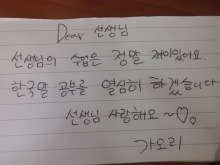 Dear 선생님
선생님의 수업은 정말 재미있어요.
한국말 공부를 열심히 하겠습니다
선생님 사랑해요 ~♡♡
가오리